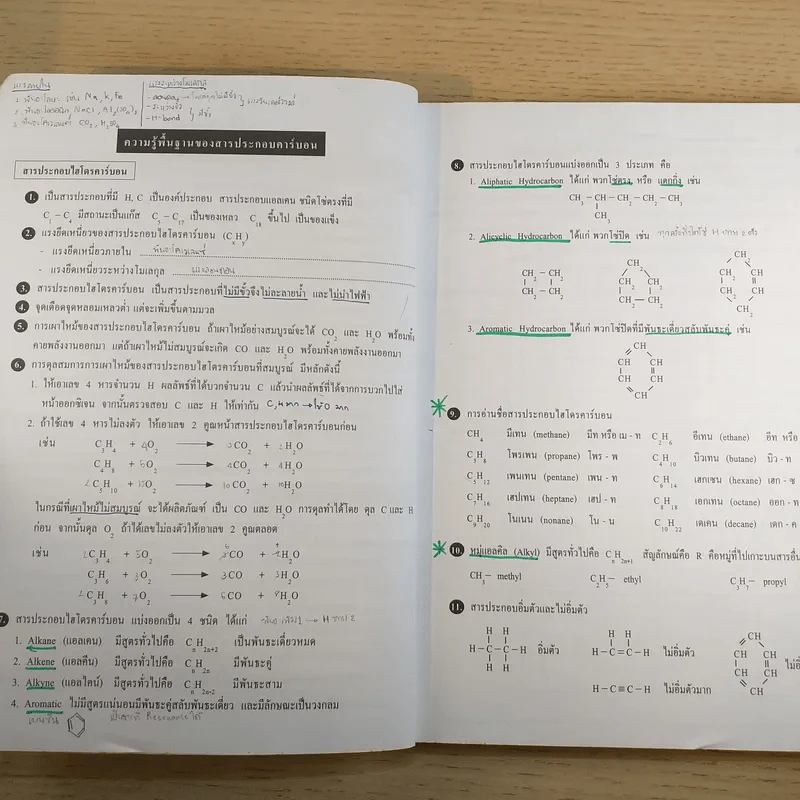 แรงภายใน
1. พันธะโลหะ เช่น Na, K, Fe
2. พันธะไอออนิก NaCl, Al₂(SO₄)₃
3. พันธะโคเวเลนต์ CO₂, H₂SO₄
แรงระหว่างโมเลกุล
- ลอนดอน → โมเลกุลไม่มีขั้ว
- ระหว่างขั้ว
มีขั้ว
- H-bond
ความรู้พื้นฐานของสารประกอบคาร์บอน
สารประกอบไฮโดรคาร์บอน
1. เป็นสารประกอบที่มี H, C เป็นองค์ประกอบ สารประกอบแอลเคน ชนิดโซ่ตรงที่มี
C₁ – C₄ มีสถานะเป็นแก๊ส C₅ – C₁₇ เป็นของเหลว C₁₈ ขึ้นไป เป็นของแข็ง
2. แรงยึดเหนี่ยวของสารประกอบไฮโดรคาร์บอน (CₓHᵧ)
- แรงยึดเหนี่ยวภายใน พันธะโคเวเลนซ์
- แรงยึดเหนี่ยวระหว่างโมเลกุล แรงลอนดอน
3. สารประกอบไฮโดรคาร์บอน เป็นสารประกอบที่ไม่มีขั้วจึงไม่ละลายน้ำ และไม่นำไฟฟ้า
4. จุดเดือดจุดหลอมเหลวต่ำ แต่จะเพิ่มขึ้นตามมวล
5. การเผาไหม้ของสารประกอบไฮโดรคาร์บอน ถ้าเผาไหม้อย่างสมบูรณ์จะได้ CO₂ และ H₂O พร้อมทั้ง
คายพลังงานออกมา แต่ถ้าเผาไหม้ไม่สมบูรณ์จะเกิด CO และ H₂O พร้อมทั้งคายพลังงานออกมา
6. การดุลสมการการเผาไหม้ของสารประกอบไฮโดรคาร์บอนที่สมบูรณ์ มีหลักดังนี้
1. ให้เอาเลข 4 หารจำนวน H ผลลัพธ์ที่ได้บวกจำนวน C แล้วนำผลลัพธ์ที่ได้จากการบวกไปใส่
หน้าออกซิเจน จากนั้นตรวจสอบ C และ H ให้เท่ากัน
2. ถ้าใช้เลข 4 หารไม่ลงตัว ให้เอาเลข 2 คูณหน้าสารประกอบไฮโดรคาร์บอนก่อน
เช่น C₃H₄ + 4O₂ → 3CO₂ + 2H₂O
C₄H₈ + 6O₂ → 4CO₂ + 4H₂O
2C₅H₁₀ + 15O₂ → 10CO₂ + 10H₂O
ในกรณีที่เผาไหม้ไม่สมบูรณ์ จะได้ผลิตภัณฑ์ เป็น CO และ H₂O การดุลทำได้โดย ดุล C และ H
ก่อน จากนั้นดุล O₂ ถ้าได้เลขไม่ลงตัวให้เอาเลข 2 คูณตลอด
เช่น 2C₃H₄ + 5O₂ → 6CO + 4H₂O
C₃H₆ + 3O₂ → 3CO + 3H₂O
2C₃H₈ + 7O₂ → 6CO + 8H₂O
7. สารประกอบไฮโดรคาร์บอน แบ่งออกเป็น 4 ชนิด ได้แก่
1. Alkane (แอลเคน) มีสูตรทั่วไปคือ CₙH₂ₙ₊₂ เป็นพันธะเดี่ยวหมด
2. Alkene (แอลคีน) มีสูตรทั่วไปคือ CₙH₂ₙ มีพันธะคู่
3. Alkyne (แอลไคน์) มีสูตรทั่วไปคือ CₙH₂ₙ₋₂ มีพันธะสาม
4. Aromatic ไม่มีสูตรแน่นอนมีพันธะคู่สลับพันธะเดี่ยว และมีลักษณะเป็นวงกลม
เบนซีน Resonance ได้
8. สารประกอบไฮโดรคาร์บอนแบ่งออกเป็น 3 ประเภท คือ
1. Aliphatic Hydrocarbon ได้แก่ พวกโซ่ตรง หรือ แตกกิ่ง เช่น
CH₃ – CH – CH₂ – CH₂ – CH₃
CH₃
2. Alicyclic Hydrocarbon ได้แก่ พวกโซ่ปิด เช่น
CH₂ – CH₂
CH₂ – CH₂
CH₂
CH₂ CH₂
CH₂ – CH₂
CH₂
CH₂ CH
CH₂ CH
CH₂
3. Aromatic Hydrocarbon ได้แก่ พวกโซ่ปิดที่มีพันธะเดี่ยวสลับพันธะคู่ เช่น
CH
CH CH
CH CH
CH
9. การอ่านชื่อสารประกอบไฮโดรคาร์บอน
CH₄ มีเทน (methane) มีท หรือ เม - ท C₂H₆ อีเทน (ethane) อีท หรือ
C₃H₈ โพรเพน (propane) โพร - พ C₄H₁₀ บิวเทน (butane) บิว - ท
C₅H₁₂ เพนเทน (pentane) เพน - ท C₆H₁₄ เฮกเซน (hexane) เฮก - ซ
C₇H₁₆ เฮปเทน (heptane) เฮป - ท C₈H₁₈ ออกเทน (octane) ออก - ท
C₉H₂₀ โนเนน (nonane) โน - น C₁₀H₂₂ เดเคน (decane) เดก - ค
10. หมู่แอลคิล (Alkyl) มีสูตรทั่วไปคือ CₙH₂ₙ₊₁ สัญลักษณ์คือ R คือหมู่ที่ไปเกาะบนสารอื่น
CH₃– methyl C₂H₅– ethyl C₃H₇– propyl
11. สารประกอบอิ่มตัวและไม่อิ่มตัว
H H
H – C – C – H อิ่มตัว
H H
H H
H – C = C – H ไม่อิ่มตัว
H – C ≡ C – H ไม่อิ่มตัวมาก
CH
CH CH
CH CH
CH